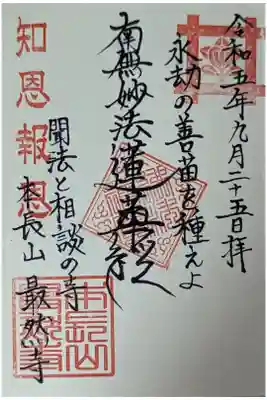 令和五年九月二十五日拝
永劫の善苗を種えよ
南無妙法蓮華経
聞法と相談の寺
本長山 最然寺
知恩報恩